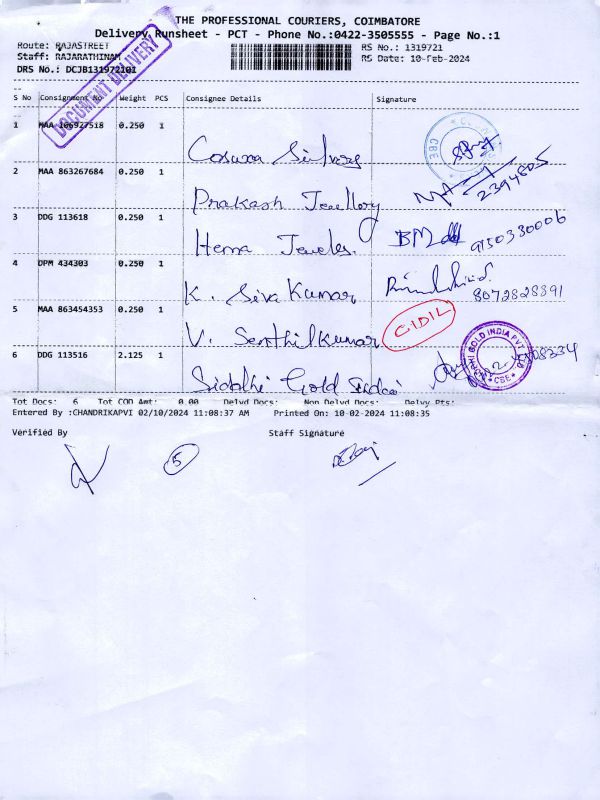 THE PROFESSIONAL COURIERS, COIMBATORE
Delivery Runsheet - PCT - Phone No.:0422-3505555 - Page No.:1
Route: RAJASTREET
RS No.: 1319721
Staff: RAJARATHINAM
RS Date: 10-Feb-2024
DRS No.: DCJB131972101
DOCUMENT DELIVERY
S No Consignment No Weight PCS Consignee Details Signature
1 MAA 106927518 0.250 1
Silvers
CBE
2 MAA 863267684 0.250 1
Prakash Jewellory
2394805
3 DDG 113618 0.250 1
Hema Jewels.
9150330006
4 DPM 434303 0.250 1
K. Siva Kumar
8072828391
5 MAA 863454353 0.250 1
V. Senthil Kumar
6 DDG 113516 2.125 1
Siddhi Gold
GOLD INDIA PVT
CBE
Tot Docs: 6 Tot COD Amt: 0.00 Delvd Docs: Non Delvd Docs: Delvy Pts:
Entered By :CHANDRIKAPVI 02/10/2024 11:08:37 AM Printed On: 10-02-2024 11:08:35
Verified By Staff Signature
5